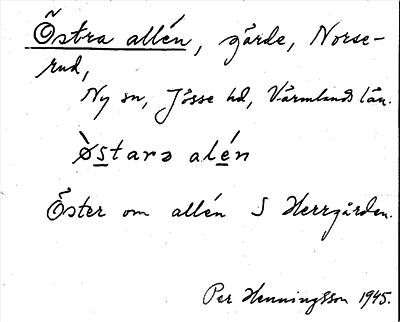 Östra allén, gärde, Norse-
rud,
Ny sn, Jösse hd, Värmlands län.
Ø̀starə alén
Öster om allén S Herrgården.
Per Henningsson 1945.